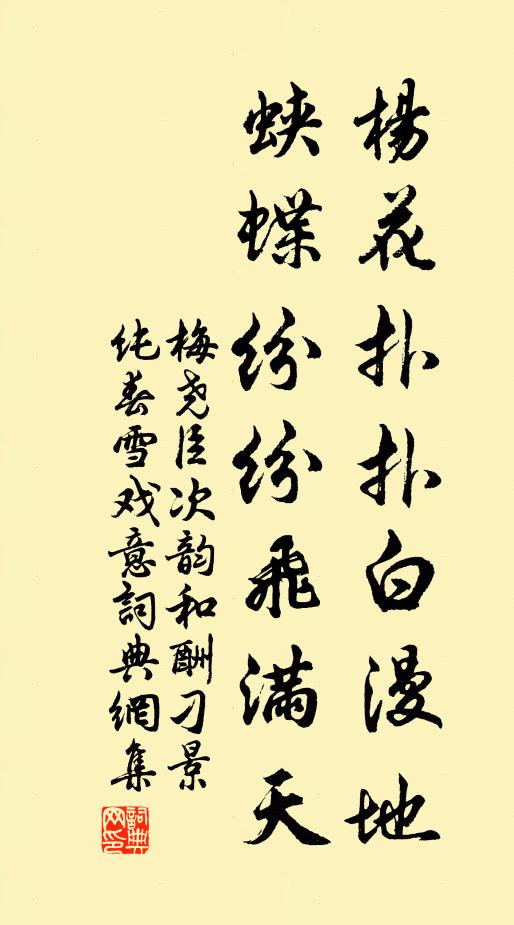 楊花扑扑白漫地
蛱蝶纷纷飛满天
梅尧臣次韵和酬刁景
纯春雪戏意詞典網集
詞典網印